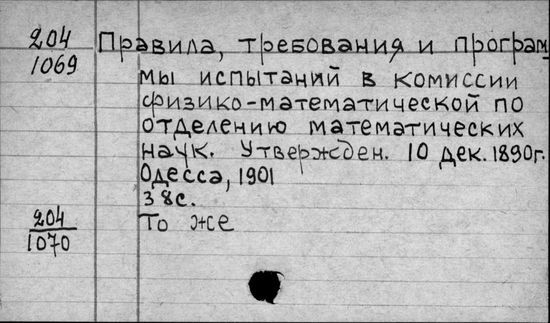 204
1069
Правила, требования и програм
мы испытаний в комиссии
физико-математической по
отделению математических
наук. Утвержден. 10 дек. 1890г.
Одесса, 1901
38с.
204
1070
То же